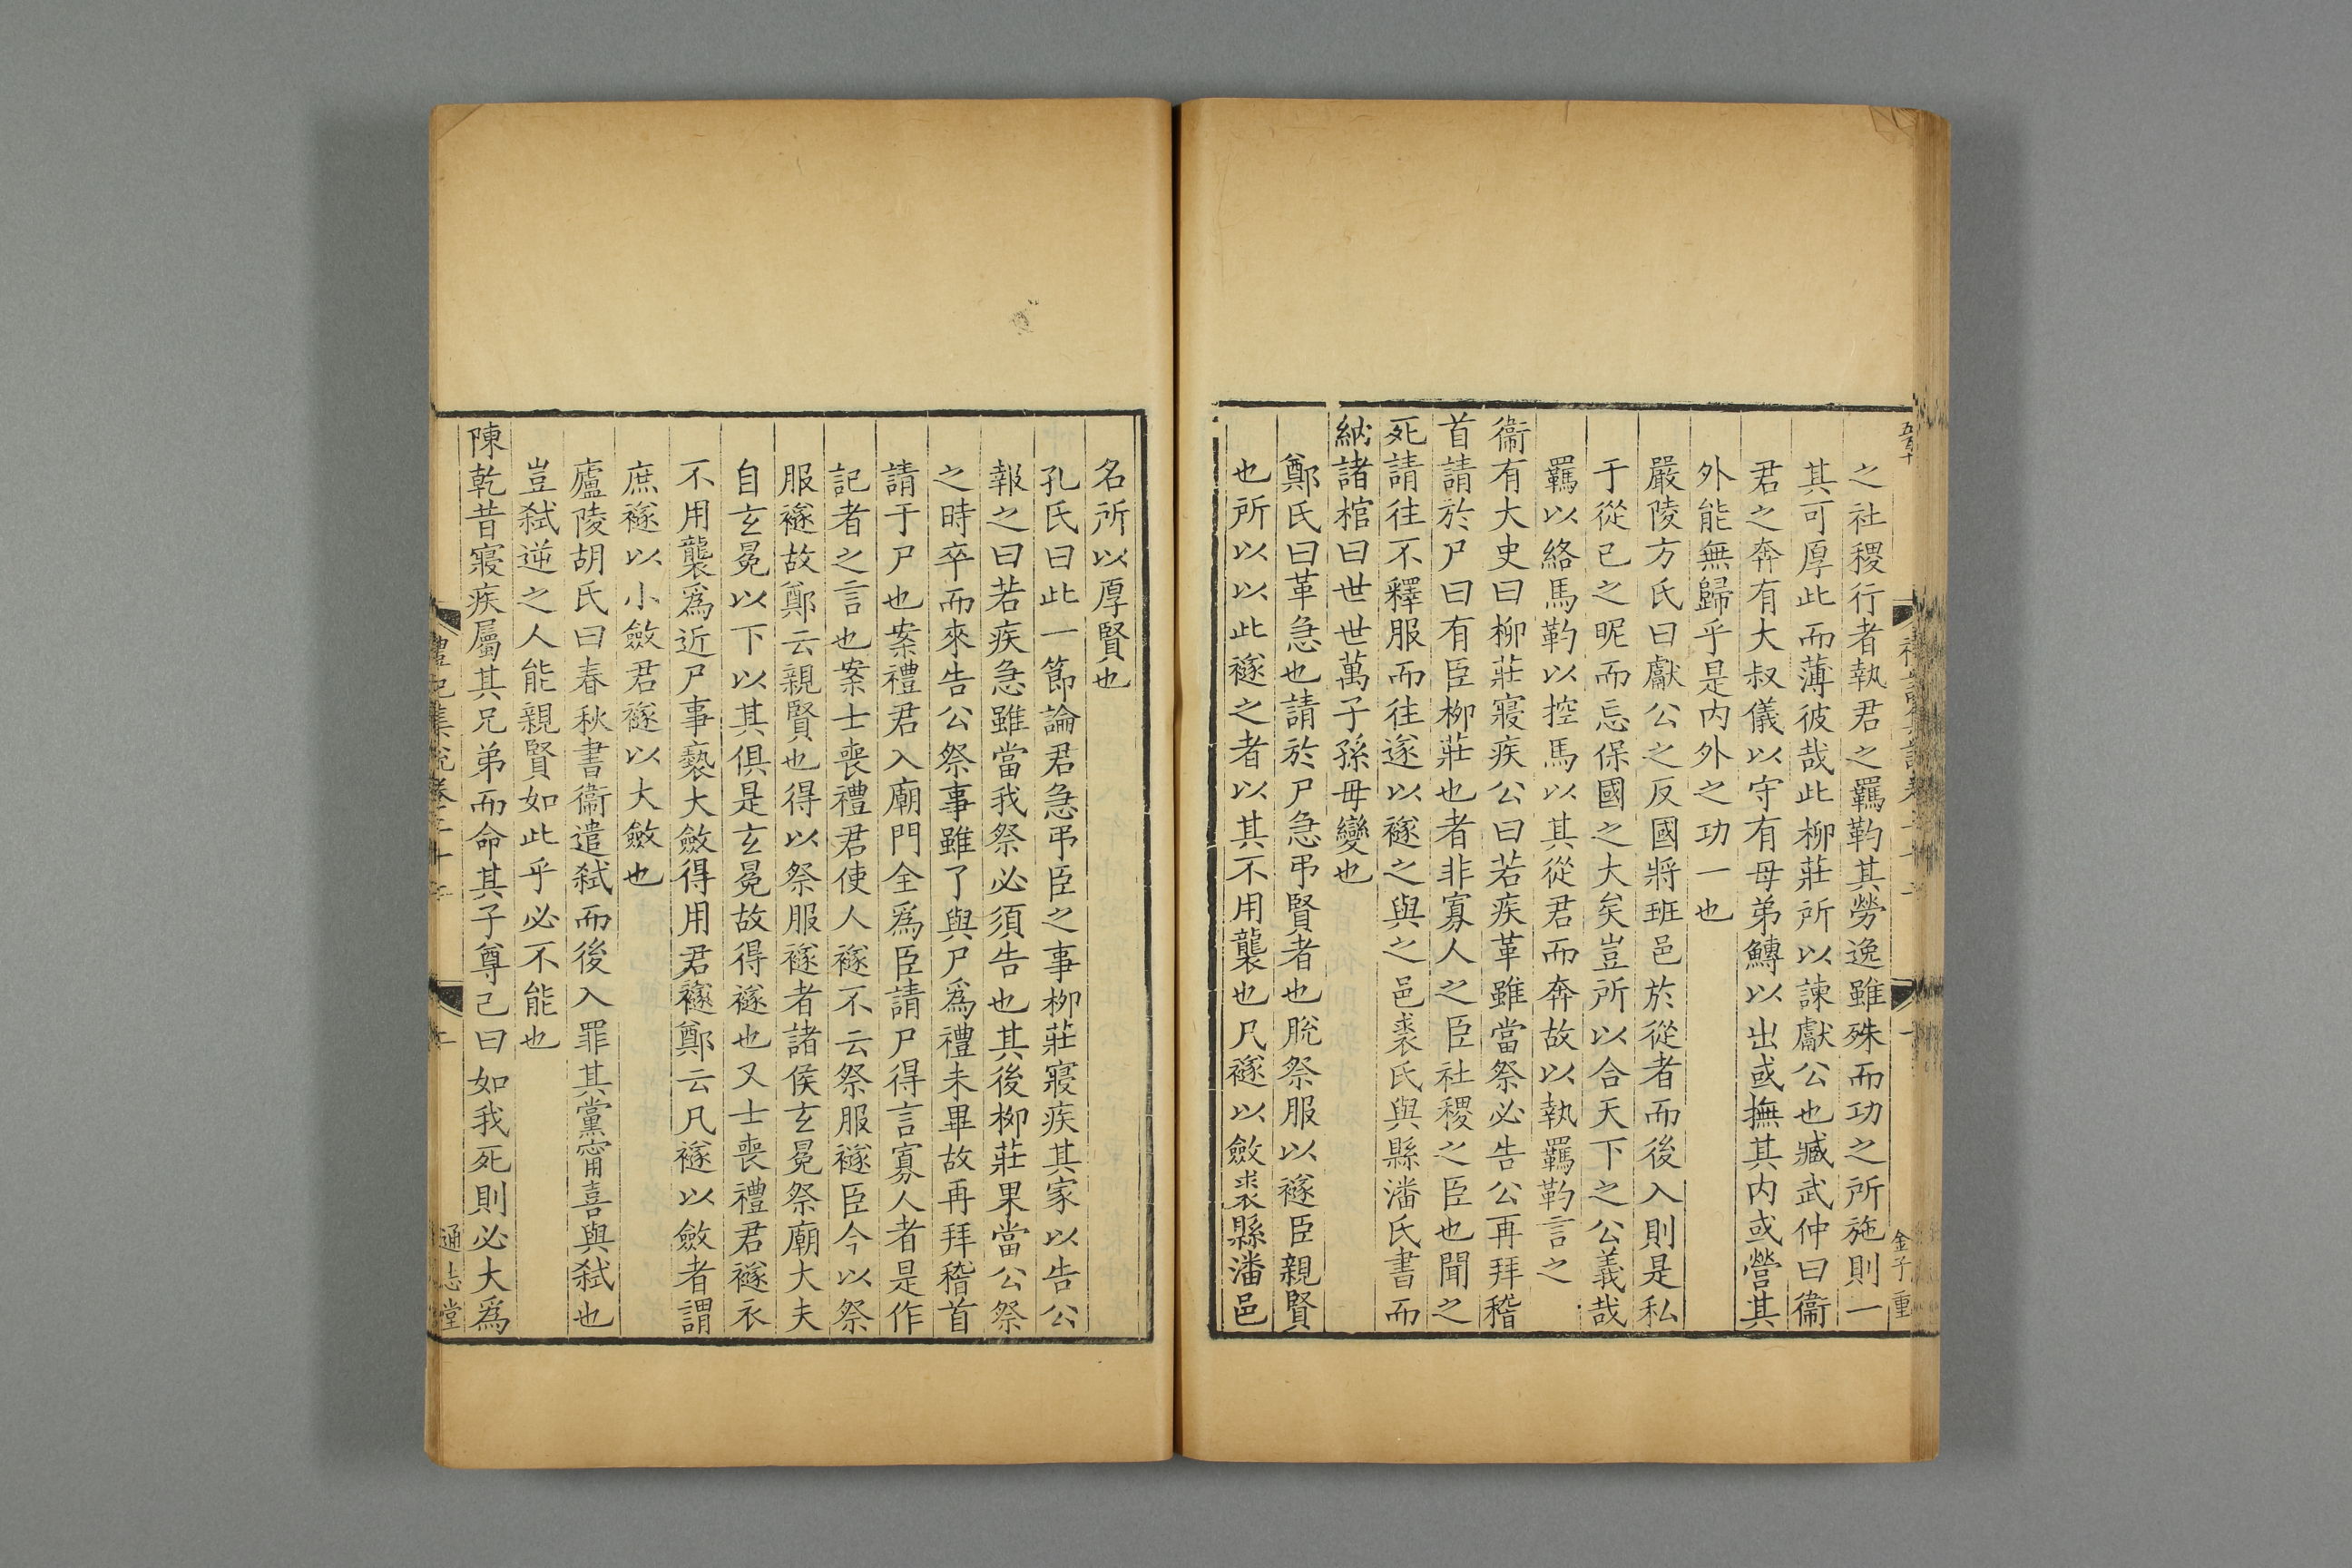 之社稷行者執君之羈靮其勞逸雖殊而功之所施則一
其可厚此而薄彼哉此柳莊所以諫獻公也臧武仲曰衞
君之奔有大叔儀以守有母弟鱄以出或撫其内或營其
外能無歸乎是内外之功一也
嚴陵方氏曰獻公之反國將班邑於從者而後入則是私
于從已之昵而忘保國之大矣豈所以合天下之公義哉
羈以絡馬靮以控馬以其從君而奔故以執羈靮言之
衞有大史曰柳莊寢疾公曰若疾革雖當祭必告公再拜稽
首請於尸曰有臣柳莊也者非寡人之臣社稷之臣也聞之
死請往不釋服而往遂以襚之與之邑裘氏與縣潘氏書而
納諸棺曰世世萬子孫毋變也
鄭氏曰革急也請於尸急弔賢者也脫祭服以襚臣親賢
也所以以此襚之者以其不用襲也凡襚以斂裘縣潘邑
金子重
名所以厚賢也
孔氏曰此一節論君急弔臣之事柳莊寢疾其家以告公
報之曰若疾急雖當我祭必須告也其後柳莊果當公祭
之時卒而來告公祭事雖了與尸爲禮未畢故再拜稽首
請于尸也案禮君入廟門全爲臣請尸得言寡人者是作
記者之言也案士喪禮君使人襚不云祭服襚臣今以祭
服襚故鄭云親賢也得以祭服襚者諸侯玄冕祭廟大夫
自玄冕以下以其俱是玄冕故得襚也又士喪禮君襚衣
不用襲爲近尸事褻大斂得用君襚鄭云凡襚以斂者謂
庶襚以小斂君襚以大斂也
廬陵胡氏曰春秋書衞遣弑而後入罪其黨甯喜與弑也
豈弑逆之人能親賢如此乎必不能也
陳乾昔寢疾屬其兄弟而命其子尊己曰如我死則必大爲
禮記集說卷二十 二
通志堂